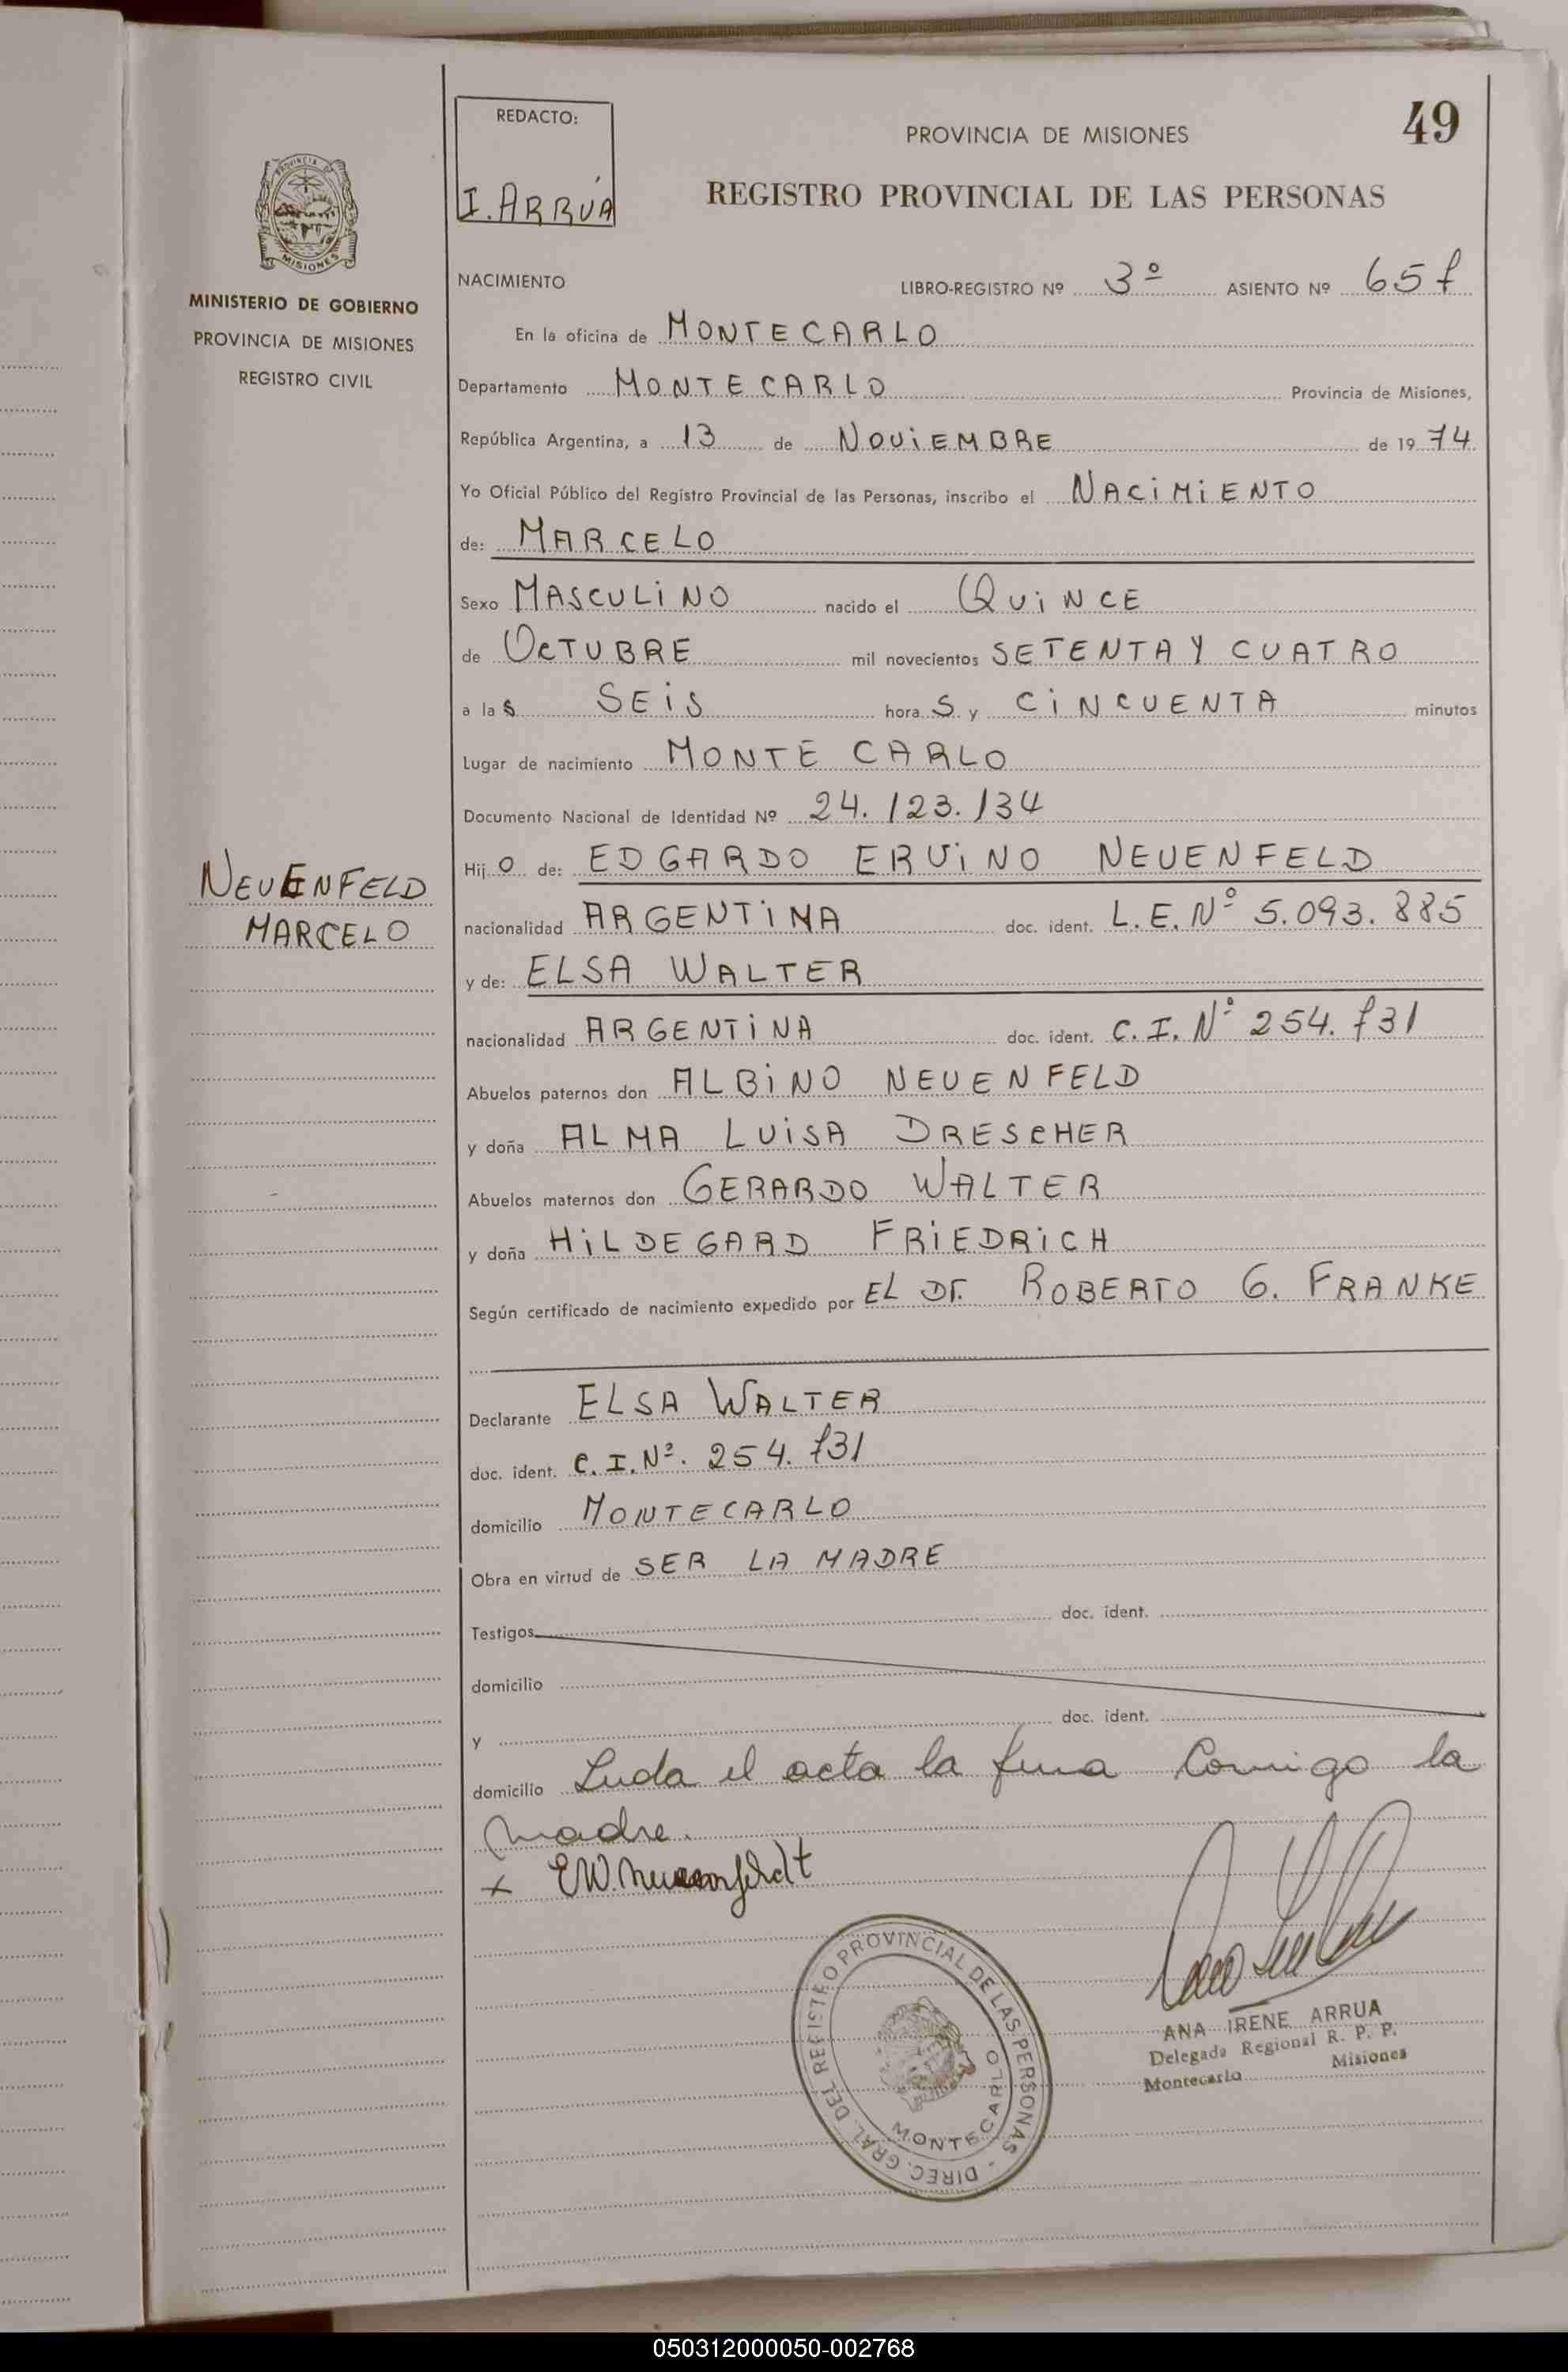 REDACTO:
I. ARRÚA
49
PROVINCIA DE MISIONES
REGISTRO PROVINCIAL DE LAS PERSONAS
PROVINCIA MISIONES
MINISTERIO DE GOBIERNO
PROVINCIA DE MISIONES
REGISTRO CIVIL
NACIMIENTO LIBRO-REGISTRO Nº 3º ASIENTO Nº 657
En la oficina de MONTECARLO
Departamento MONTECARLO Provincia de Misiones,
República Argentina, a 13 de NOVIEMBRE de 1974
Yo Oficial Público del Registro Provincial de las Personas, inscribo el NACIMIENTO
de: MARCELO
Sexo MASCULINO nacido el QUINCE
de OCTUBRE mil novecientos SETENTA Y CUATRO
a las SEIS horas y CINCUENTA minutos
Lugar de nacimiento MONTE CARLO
Documento Nacional de Identidad Nº 24.123.134
Hijo de: EDGARDO ERVINO NEUENFELD
NEUENFELD
MARCELO
nacionalidad ARGENTINA doc. ident. L.E. Nº 5.093.885
y de: ELSA WALTER
nacionalidad ARGENTINA doc. ident. C.I. Nº 254.731
Abuelos paternos don ALBINO NEUENFELD
y doña ALMA LUISA DRESCHER
Abuelos maternos don GERARDO WALTER
y doña HILDEGARD FRIEDRICH
Según certificado de nacimiento expedido por EL DR. ROBERTO G. FRANKE
Declarante ELSA WALTER
doc. ident. C.I. Nº. 254.731
domicilio MONTECARLO
Obra en virtud de SER LA MADRE
Testigos doc. ident.
domicilio
y doc. ident.
domicilio Leida el acta la firma Conmigo la
madre.
x E W.
DIREC. GRAL. DEL REGISTRO PROVINCIAL DE LAS PERSONAS - MONTECARLO
ANA IRENE ARRUA
Delegada Regional R. P. P.
Montecarlo Misiones
050312000050-002768